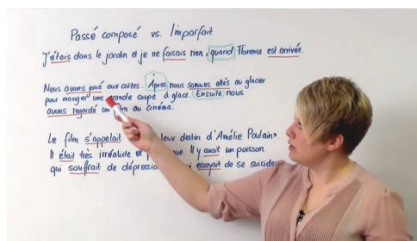 Passé composé vs. l'imparfait
J'étais dans le jardin et je ne faisais rien, quand Florence est arrivée.
Nous avons joué aux cartes. Après nous sommes allés au glacier
pour manger une grande coupe à glace. Ensuite nous
avons regardé un film au cinéma.
Le film s'appelait leur destin d'Amélie Poulain»
Il était très irréaliste et Il y avait un poisson
qui souffrait de dépression essayait de se suicider